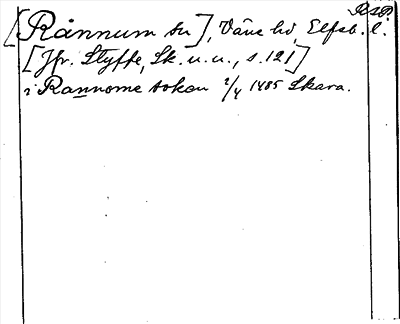 [Rånnum sn], Våne hd, Elfsb. l.
[Jfr. Styffe, Sk. u. u., s. 121]
i Rannome sokæn 2/4 1485 Skara.